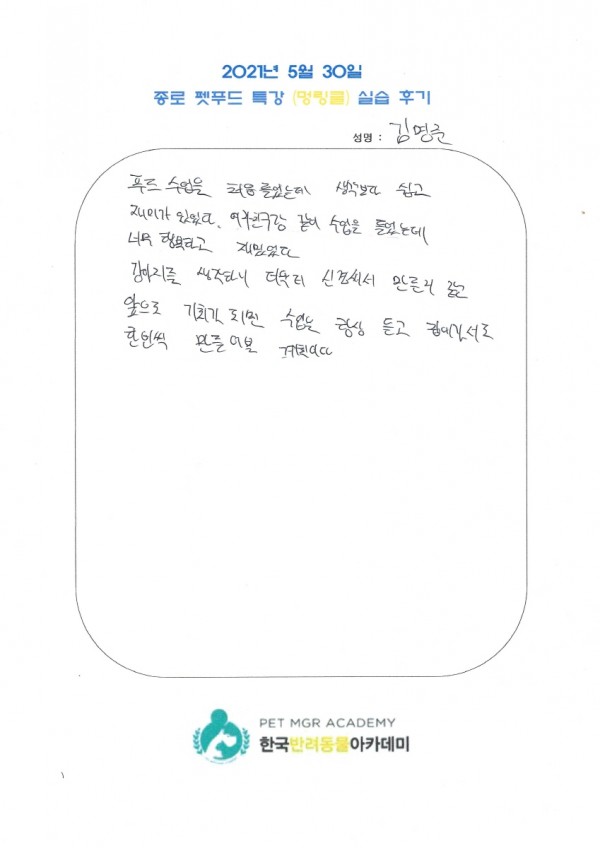 2021년 5월 30일
종로 펫푸드 특강 (멍링클) 실습 후기
성명 : 김명준
푸드 수업을 처음 들었는데 생각보다 쉽고
재미가 있었다. 여자친구랑 같이 수업을 들었는데
너무 행복하고 재밌었다
강아지를 생각하니 더욱더 신경써서 만들게 됐고
앞으로 기회가 되면 수업을 항상 듣고 집에가서도
한번씩 만들어볼 계획이다
PET MGR ACADEMY
한국반려동물아카데미